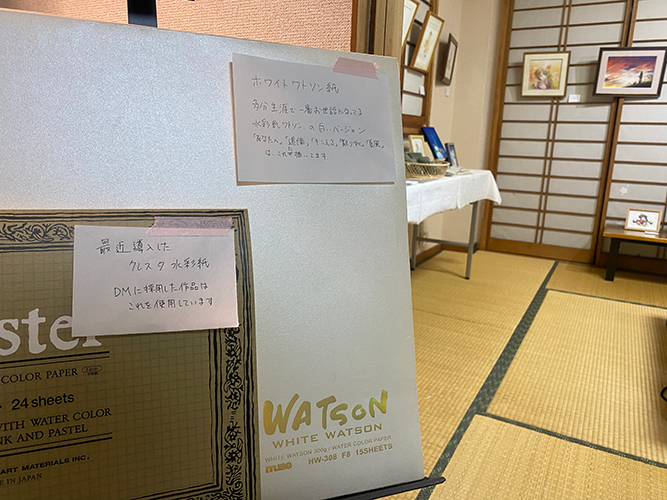 ホワイトワトソン紙
多分生涯で一番お世話になってる
水彩紙ワトソンの白いバージョン
は、これで描いてます
最近導入した
クレスタ水彩紙
DMに採用した作品は
これを使用しています
ster
COLOR PAPER
24 sheets
WITH WATER COLOR
INK AND PASTEL
ART MATERIALS INC.
IN JAPAN
WATSON
WHITE WATSON
WHITE WATSON 300g / WATER COLOR PAPER
muse HW-308 F8 15SHEETS